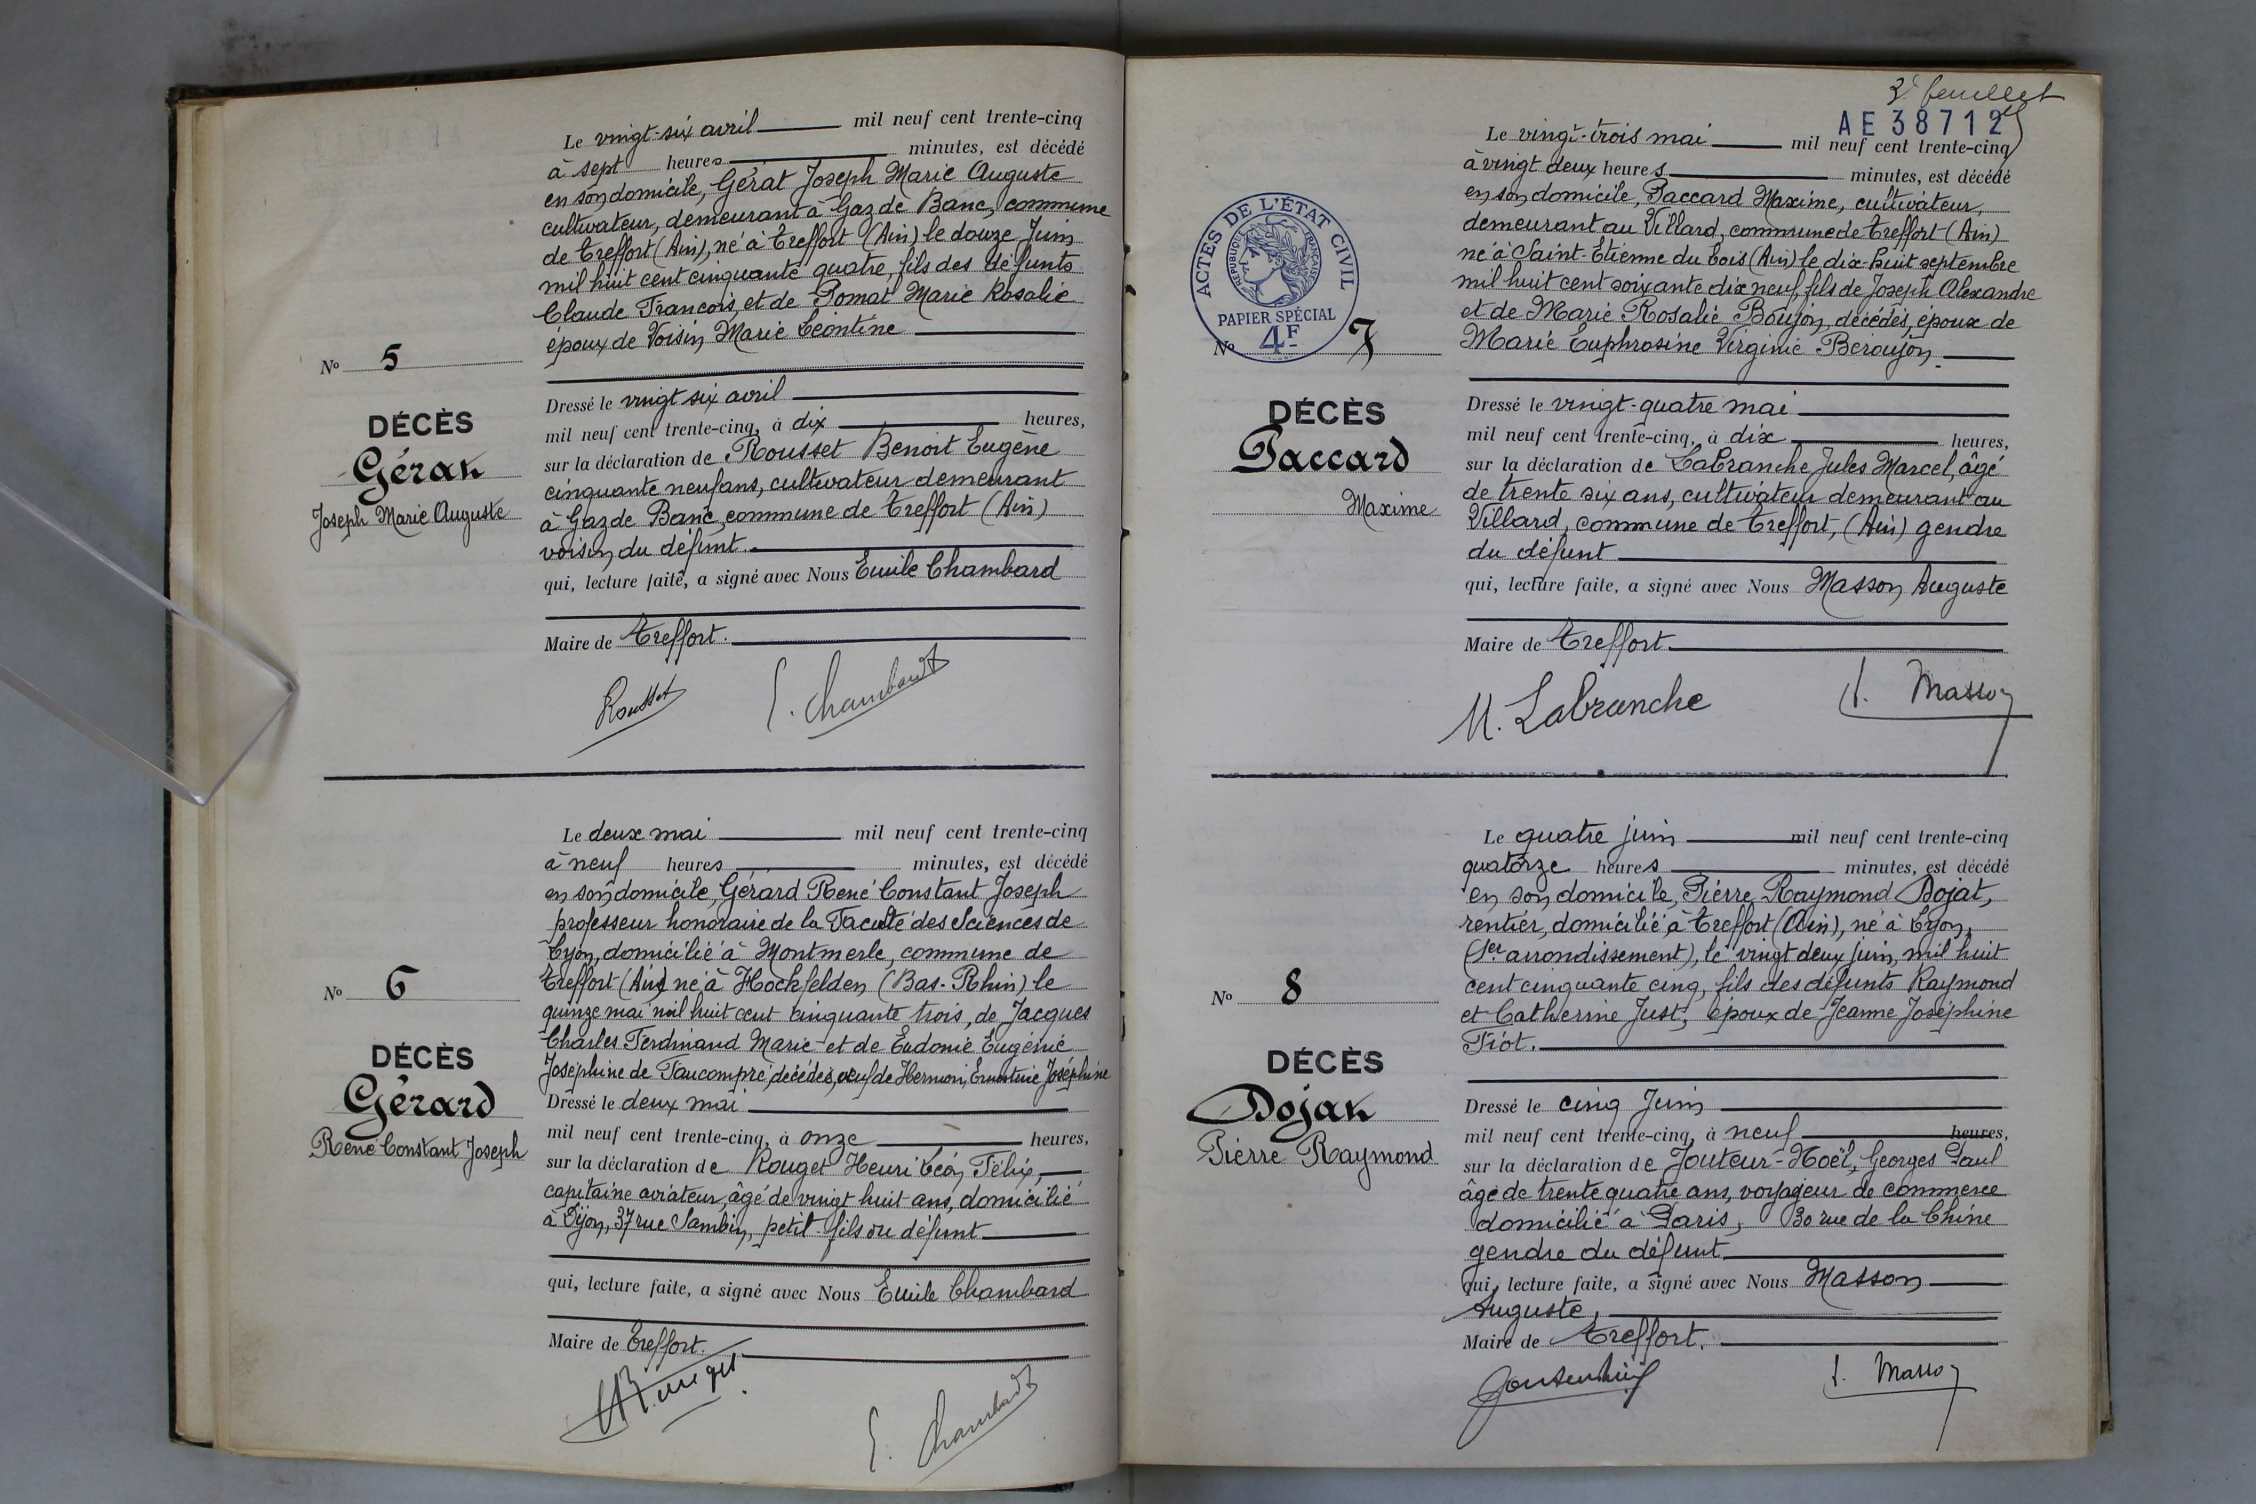 Le vingt-six avril mil neuf cent trente-cinq
à sept heures minutes, est décédé
en son domicile, Gérat Joseph Marie Auguste
cultivateur, demeurant à Gaz de Banc, commune
de Treffort (Ain), né à Treffort (Ain) le douze Juin
mil huit cent cinquante quatre, fils des défunts
Claude François, et de Pomat Marie Rosalie
époux de Voisin Marie Léontine
No 5
DÉCÈS
Gérat
Joseph Marie Auguste
Dressé le vingt six avril
mil neuf cent trente-cinq, à dix heures,
sur la déclaration de Rousset Benoit Eugène
cinquante neuf ans, cultivateur demeurant
à Gaz de Banc, commune de Treffort (Ain)
voisin du défunt.
qui, lecture faite, a signé avec Nous Emile Chambard
Maire de Treffort.
Rousset E. Chambard
Le deux mai mil neuf cent trente-cinq
à neuf heures minutes, est décédé
en son domicile, Gérard René Constant Joseph
professeur honoraire de la Faculté des Sciences de
Lyon, domicilié à Montmerle, commune de
Treffort (Ain) né à Hockfelden (Bas-Rhin) le
quinze mai mil huit cent cinquante trois, de Jacques
Charles Ferdinand Marie et de Eudonie Eugénie
Joséphine de Faucompré, décédés, veuf de Hermon, Ernestine Joséphine
No 6
DÉCÈS
Gérard
René Constant Joseph
Dressé le deux mai
mil neuf cent trente-cinq, à onze heures,
sur la déclaration de Rouget Henri Léon Félix,
capitaine aviateur, âgé de vingt huit ans, domicilié
à Dijon, 37 rue Sambin, petit fils du défunt
qui, lecture faite, a signé avec Nous Emile Chambard
Maire de Treffort.
E. Chambard
3e feuillet
AE38712
Le vingt-trois mai mil neuf cent trente-cinq
à vingt deux heures minutes, est décédé
en son domicile, Paccard Maxime, cultivateur,
demeurant au Villard, commune de Treffort (Ain)
né à Saint-Etienne du bois (Ain) le dix-huit septembre
mil huit cent soixante dix neuf, fils de Joseph Alexandre
et de Marie Rosalie Boujon, décédés, époux de
Marie Euphrosine Virginie Beroujon.
ACTES DE L'ÉTAT CIVIL
RÉPUBLIQUE FRANÇAISE
PAPIER SPÉCIAL
4F
No 7
DÉCÈS
Paccard
Maxime
Dressé le vingt-quatre mai
mil neuf cent trente-cinq, à dix heures,
sur la déclaration de Labranche Jules Marcel, âgé
de trente six ans, cultivateur demeurant au
Villard, commune de Treffort, (Ain) gendre
du défunt
qui, lecture faite, a signé avec Nous Masson Auguste
Maire de Treffort.
M. Labranche A. Masson
Le quatre juin mil neuf cent trente-cinq
quatorze heures minutes, est décédé
en son domicile, Pierre Raymond Dojat,
rentier, domicilié à Treffort (Ain), né à Lyon,
(1er arrondissement), le vingt deux juin, mil huit
cent cinquante cinq, fils des défunts Raymond
et Catherine Just, époux de Jeanne Joséphine
Fiot.
No 8
DÉCÈS
Dojat
Pierre Raymond
Dressé le cinq Juin
mil neuf cent trente-cinq, à neuf heures,
sur la déclaration de Jouteur-Noël, Georges Paul
âgé de trente quatre ans, voyageur de commerce
domicilié à Paris, 30 rue de la Chine
gendre du défunt
qui, lecture faite, a signé avec Nous Masson
Auguste,
Maire de Treffort.
A. Masson